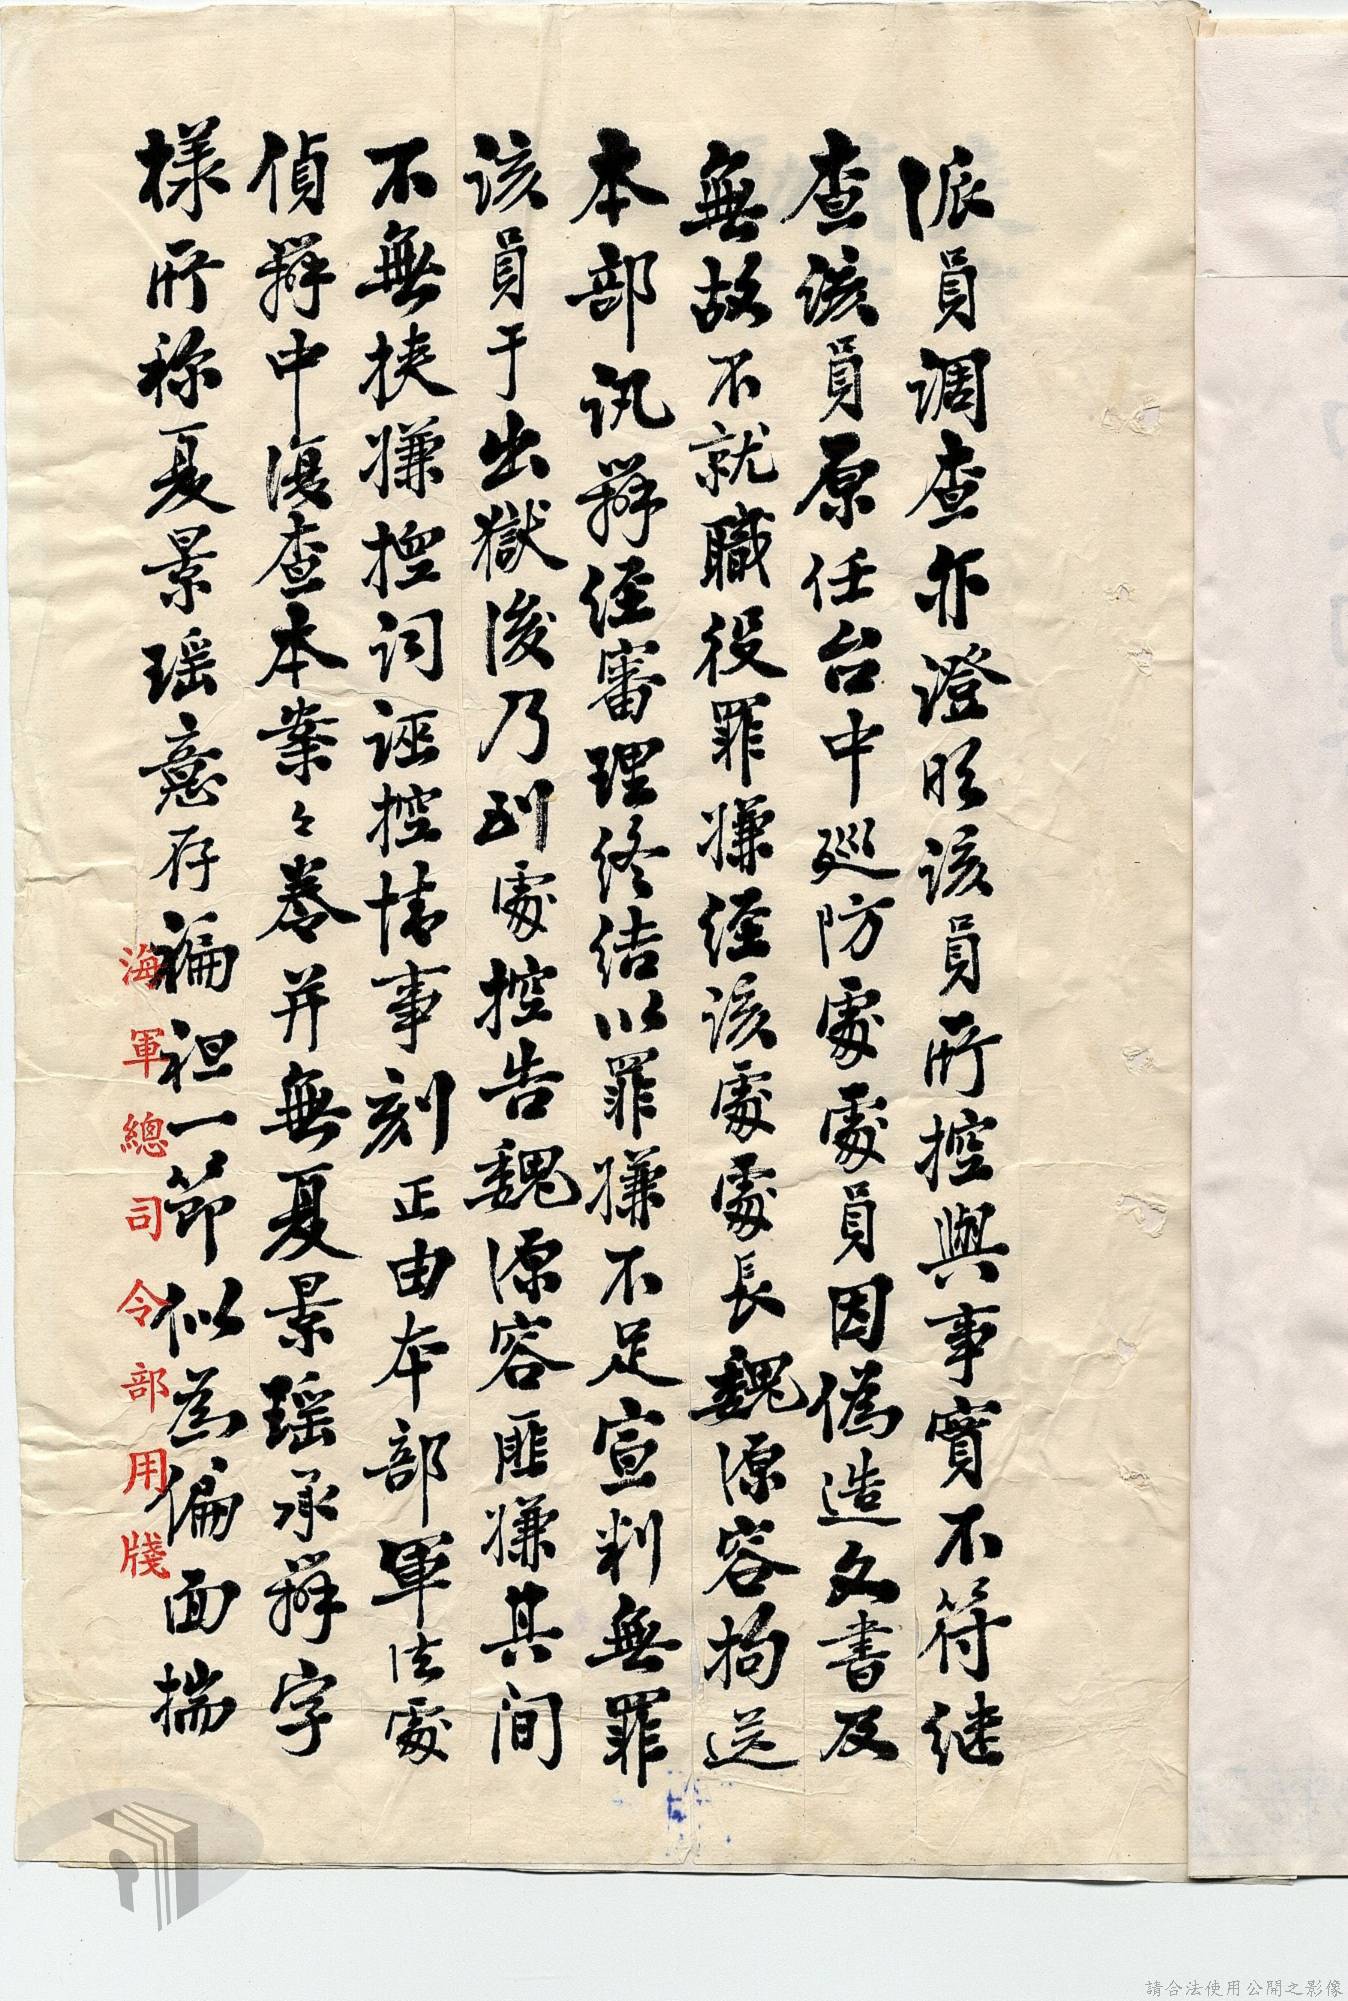 派員調查亦證明該員所控與事實不符继
查該員原任台中巡防處處員因偽造文書及
無故不就職役罪嫌經該處處長魏源容拘送
本部訊辦经審理终结以罪嫌不足宣判無罪
該員于出獄後乃到處控告魏源容匪嫌其间
不無挾嫌控词誣控情事刻正由本部軍法處
偵辦中復查本案之卷并無夏景瑶承辦字
樣所称夏景瑶意存褊袒一節似為偏面揣
海軍總司令部用牋
請合法使用公開之影像